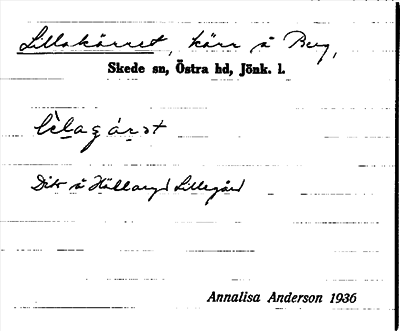 Lillakärret, kärr å Berg,
Skede sn, Östra hd, Jönk. l.
Dito å Hållaryd Lillegård
Annalisa Anderson 1936